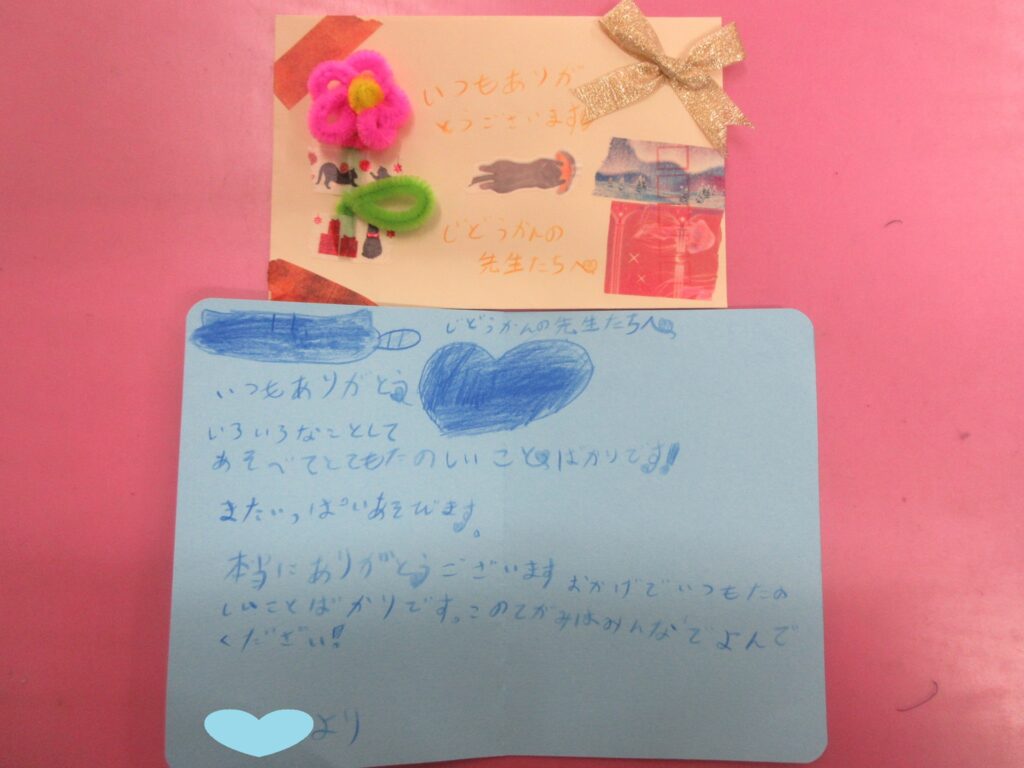 いつもありが
とうございます
じどうかんの
先生たちへ
じどうかんの先生たちへ
いつもありがとう
いろいろなことして
あそべてとてもたのしいことばかりです!
またいっぱいあそびます。
本当にありがとうございます おかげでいつもたの
しいことばかりです。このてがみはみんなでよんで
ください!
より